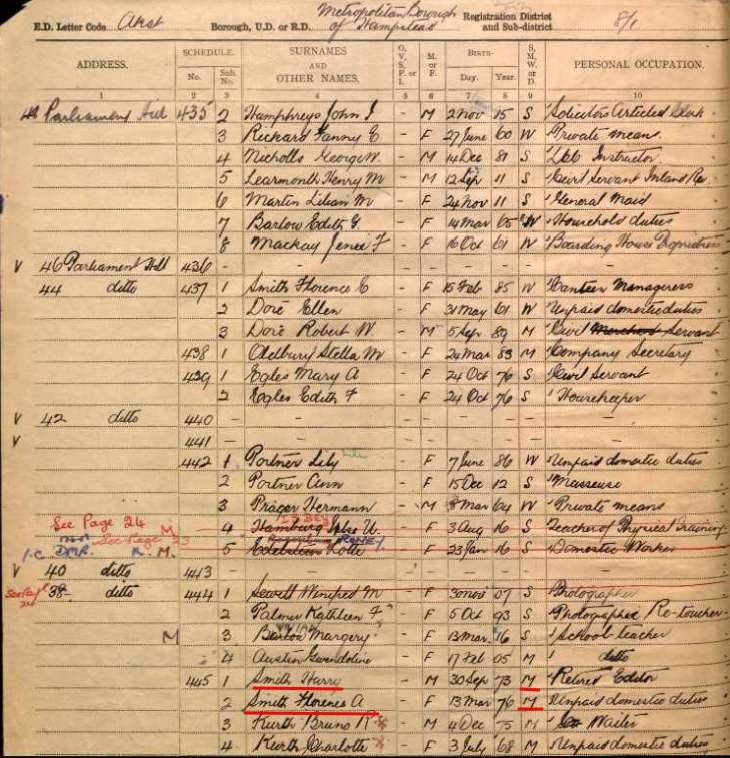 E.D. Letter Code Borough, U.D. or R.D. Metropolitan Borough of Hampstead Registration District and Sub-district 8/1
ADDRESS. SCHEDULE. No. Sub. No. SURNAMES AND OTHER NAMES. O, V, S, P, or I. M. or F. BIRTH— Day. Year. S, M, W, or D. PERSONAL OCCUPATION.
1 2 3 4 5 6 7 8 9 10
48 Parliament Hill 435 2 Humphreys John I - M 2 Nov 15 S Solicitors Articled Clerk
3 Rickard Fanny E - F 27 June 60 W Private means.
4 Nicholls George W. - M 14 Dec 81 S Instructor.
5 Learmonth Henry M - M 12 Sep 11 S Civil Servant Inland Rev.
6 Martin Lilian M - F 24 Nov 11 S General Maid
7 Barlow Edith G. - F 14 Mar 65 W Household duties
8 Mackay F - F 16 Oct 61 W Boarding House Proprietress
V 46 Parliament Hill 436 - - -
44 ditto 437 1 Smith Florence C - F 15 Feb 85 W Canteen Manageress
2 Doré Ellen - F 31 May 61 W Unpaid domestic duties
3 Doré Robert W. - M 5 Sep 89 M Civil Servant
438 1 Oldbury Stella M - F 24 Mar 83 M Company Secretary
439 1 Egles Mary A - F 24 Oct 76 S Civil Servant
2 Egles Edith F - F 24 Oct 76 S Housekeeper
V 42 ditto 440 - - -
V 441 - - -
442 1 Portner Lily - F 7 June 86 W Unpaid domestic duties
2 Portner Ann - F 15 Dec 12 S Masseuse
3 Prager Hermann - M 8 Mar 64 W Private means
See Page 24 M 4 Hamburg U. - F 3 Aug 16 S Teacher of Physical Training
See Page 23 R. M. 5 Edelstein Lotte - F 23 Jan 16 S Domestic Worker
V 40 ditto 443 - - -
See Page 24 38 ditto 444 1 Sewell Winifred M - F 30 Nov 07 S Photographer
2 Palmer Kathleen F - F 5 Oct 93 S Photographer Re-toucher
M 3 Barlow Margery - F 13 Mar 16 S School teacher
4 Austin Gwendoline F 17 Feb 05 M ditto
445 1 Smith Harry - M 30 Sep 73 M Retired Editor
2 Smith Florence A - F 13 Mar 76 M Unpaid domestic duties
3 Kurth Bruno R - M 4 Dec 75 M Waiter
4 Kurth Charlotte - F 3 July 68 M Unpaid domestic duties